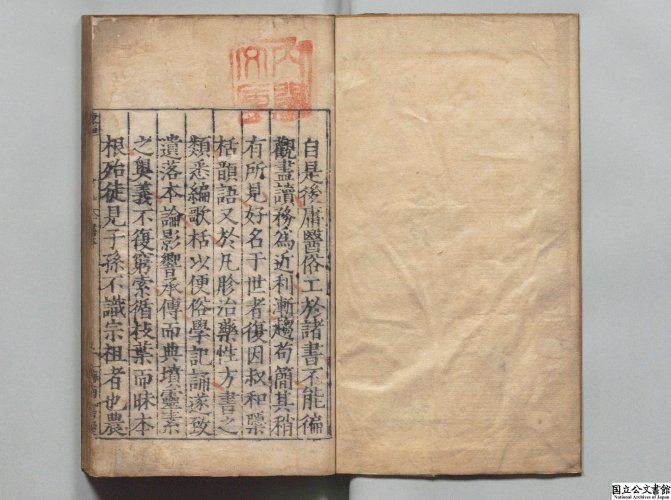 自是後庸醫俗工於諸書不能徧
觀盡讀務爲近利漸趨苟簡其稍
有所見好名于世者復因叔和檃
栝韻語又於凡胗治藥性方書之
類悉編歌栝以便俗學記誦遂致
遺落本論影響承傳而典墳靈素
之奥義不復窮索循枝葉而昧本
根殆徒見子孫不識宗祖者也農
内閣
文庫
国立公文書館
National Archives of Japan